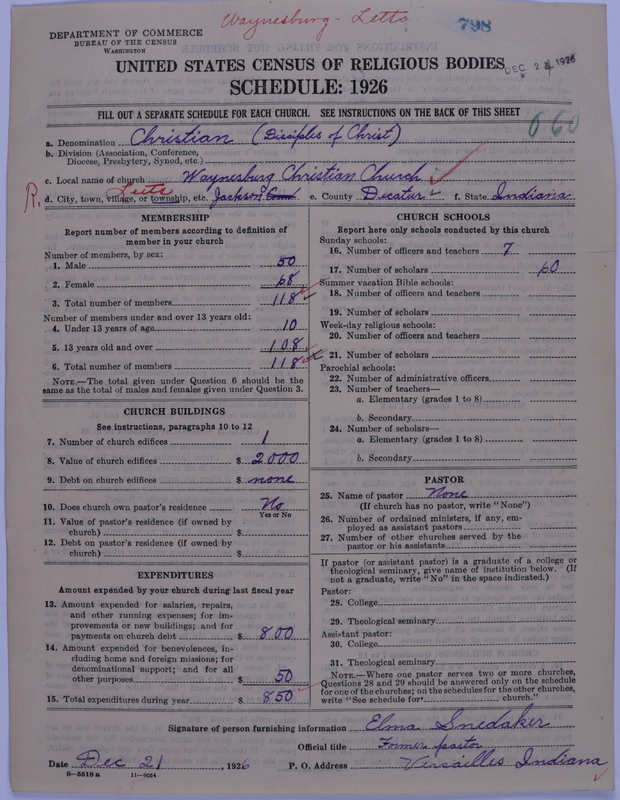 Waynesburg - Letts
798
DEPARTMENT OF COMMERCE
BUREAU OF THE CENSUS
WASHINGTON
DEC 24 1926
UNITED STATES CENSUS OF RELIGIOUS BODIES
SCHEDULE: 1926
FILL OUT A SEPARATE SCHEDULE FOR EACH CHURCH. SEE INSTRUCTIONS ON THE BACK OF THIS SHEET
060
a. Denomination Christian (Disciples of Christ)
b. Division (Association, Conference,
Diocese, Presbytery, Synod, etc.)
c. Local name of church Waynesburg Christian Church
R. Letts
d. City, town, village, or township, etc. Jackson e. County Decatur f. State Indiana
MEMBERSHIP
Report number of members according to definition of
member in your church
Number of members, by sex:
1. Male 50
2. Female 68
3. Total number of members 118
Number of members under and over 13 years old:
4. Under 13 years of age 10
5. 13 years old and over 108
6. Total number of members 118
NOTE.—The total given under Question 6 should be
same as the total of males and females given under Question 3.
CHURCH BUILDINGS
See instructions, paragraphs 10 to 12
7. Number of church edifices 1
8. Value of church edifices $ 2000
9. Debt on church edifices $ none
10. Does church own pastor's residence No
Yes or No
11. Value of pastor's residence (if owned by
church) $
12. Debt on pastor's residence (if owned by
church) $
EXPENDITURES
Amount expended by your church during last fiscal year
13. Amount expended for salaries, repairs,
and other running expenses; for im-
provements or new buildings; and for
payments on church debt $ 800
14. Amount expended for benevolences, in-
cluding home and foreign missions; for
denominational support; and for all
other purposes $ 50
15. Total expenditures during year $ 850
CHURCH SCHOOLS
Report here only schools conducted by this church
Sunday schools:
16. Number of officers and teachers 7
17. Number of scholars 60
Summer vacation Bible schools:
18. Number of officers and teachers
19. Number of scholars
Week-day religious schools:
20. Number of officers and teachers
21. Number of scholars
Parochial schools:
22. Number of administrative officers
23. Number of teachers—
a. Elementary (grades 1 to 8)
b. Secondary
24. Number of scholars—
a. Elementary (grades 1 to 8)
b. Secondary
PASTOR
25. Name of pastor None
(If church has no pastor, write "None")
26. Number of ordained ministers, if any, em-
ployed as assistant pastors
27. Number of other churches served by the
pastor or his assistants
If pastor (or assistant pastor) is a graduate of a college or
theological seminary, give name of institution below. (If
not a graduate, write "No" in the space indicated.)
Pastor:
28. College
29. Theological seminary
Assistant pastor:
30. College
31. Theological seminary
NOTE.—Where one pastor serves two or more churches,
Questions 28 and 29 should be answered only on the schedule
for one of the churches; on the schedules for the other churches,
write "See schedule for church."
Signature of person furnishing information Elma Snedaker
Official title Former pastor
Date Dec 21, 1926 P. O. Address Versailles Indiana
8-5518 a 11-9054